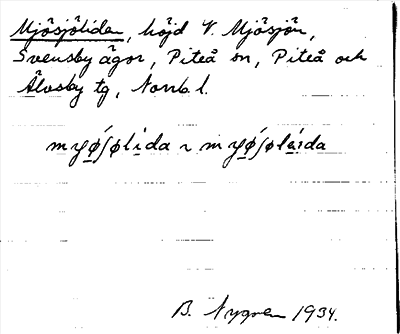 Mjösjöliden, höjd V. Mjösjön,
Svensby ägor, Piteå sn, Piteå och
Älvsby tg, Norrb. l.
myǿʃølida ~ myǿʃøleida
B. Nygren 1934.